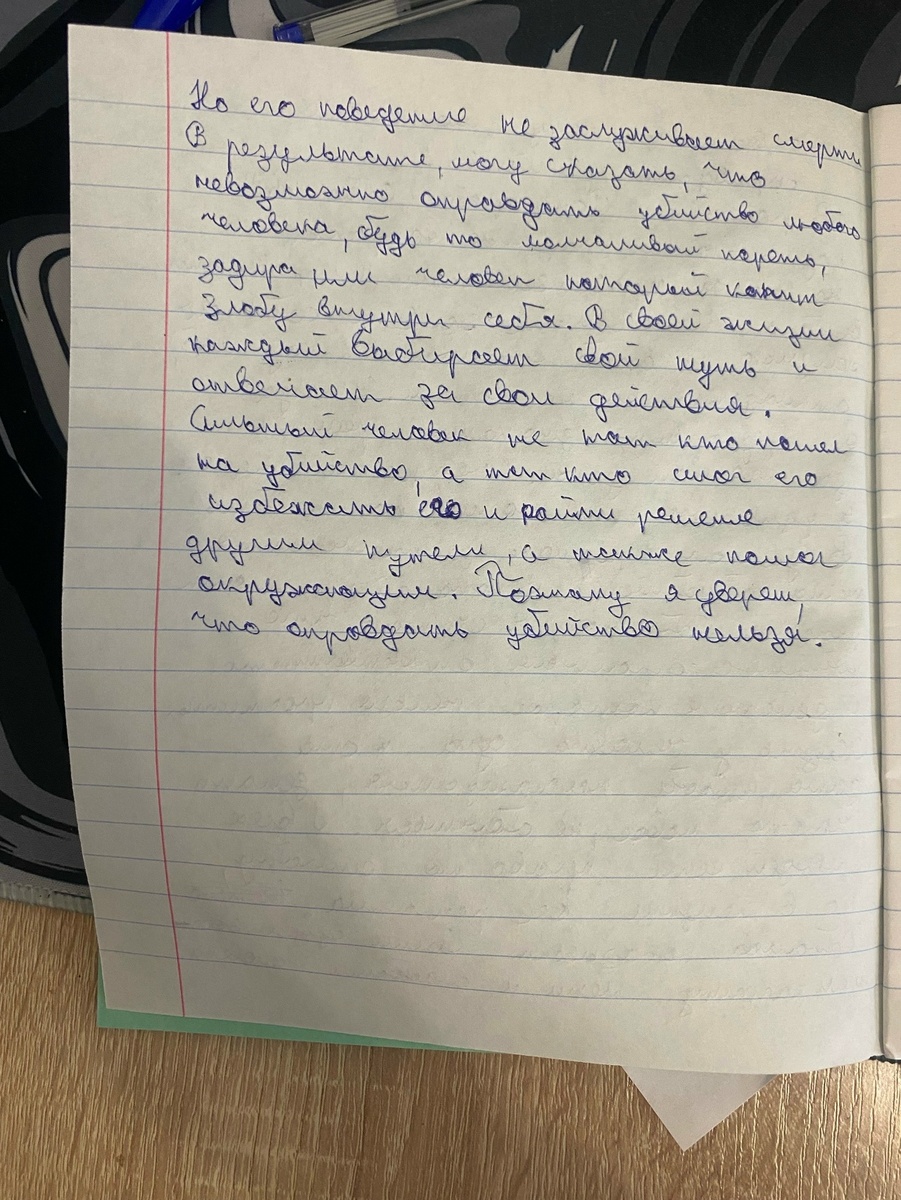 Но его поведение не заслуживает смерти
В результате, могу сказать, что
невозможно оправдать убийство любого
человека, будь то молчаливый парень,
задира или человек который копит
злобу внутри себя. В своей жизни
каждый выбирает свой путь и
отвечает за свои действия.
Сильный человек не тот кто пошел
на убийство, а тот кто смог его
избежать и найти решение
другим путем, а также помог
окружающим. Поэтому я уверен,
что оправдать убийство нельзя.